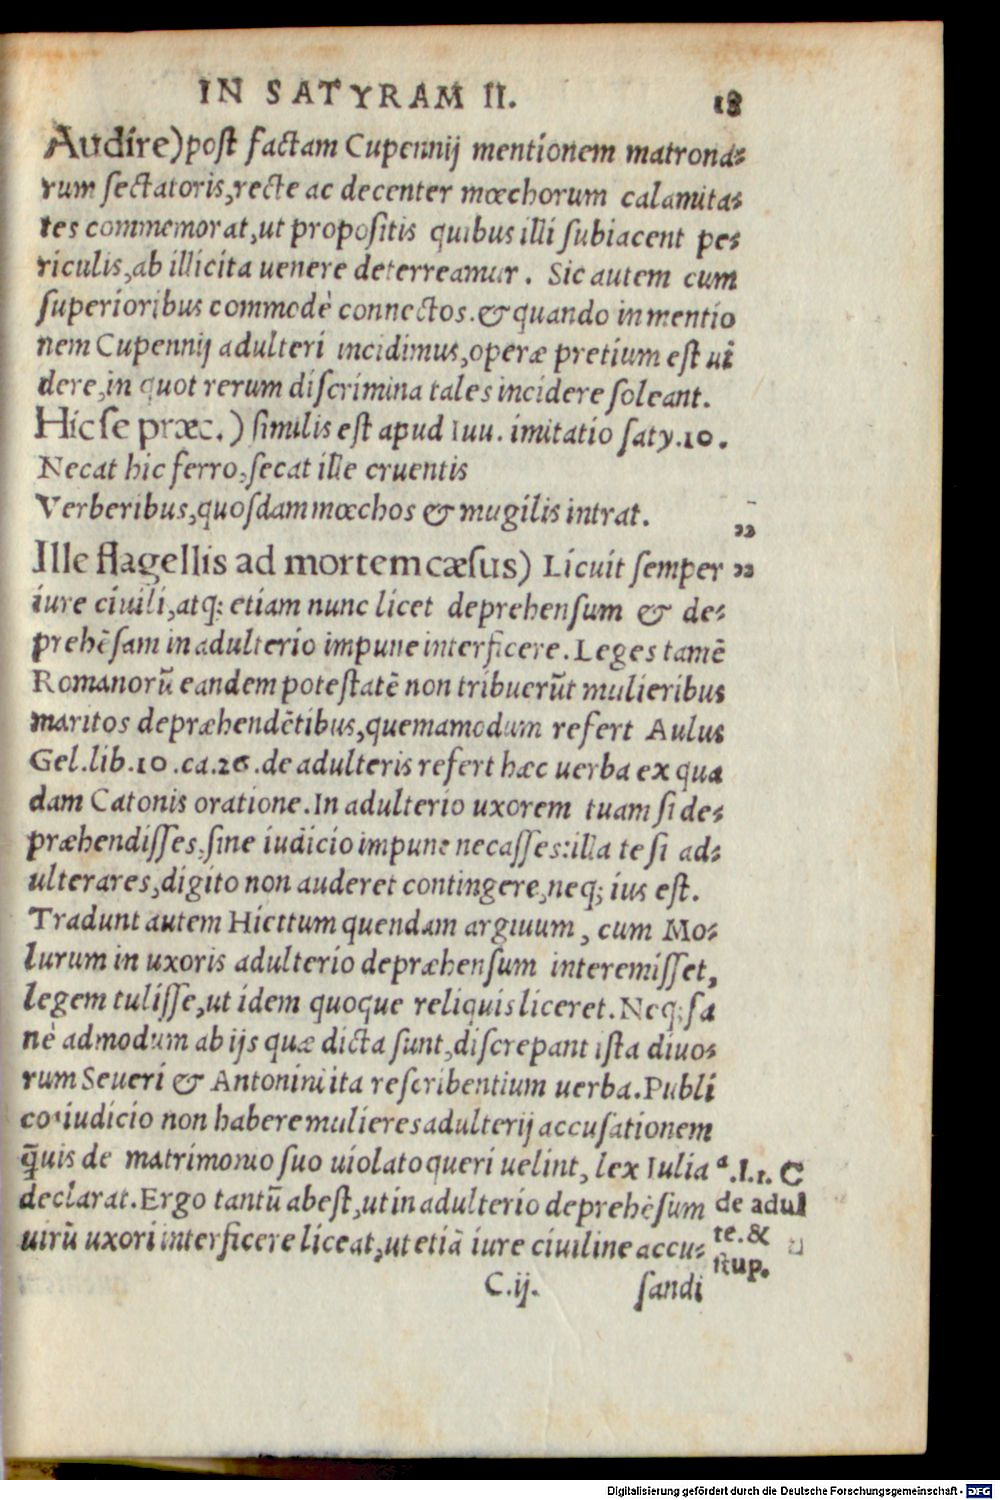 IN SATYRAM II. 18
Audire) post factam Cupennij mentionem matrona-
rum sectatoris, recte ac decenter mœchorum calamita-
tes commemorat, ut propositis quibus illi subiacent pe-
riculis, ab illicita uenere deterreamur. Sic autem cum
superioribus commodè connectos. & quando in mentio
nem Cupennij adulteri incidimus, operæ pretium est ui
dere, in quot rerum discrimina tales incidere soleant.
Hic se præc.) similis est apud Iuu. imitatio saty.10.
Necat hic ferro, secat ille cruentis
Verberibus, quosdam mœchos & mugilis intrat.
Ille flagellis ad mortem cæsus) Licuit semper
iure ciuili, atq; etiam nunc licet deprehensum & de-
prehēsam in adulterio impune interficere. Leges tamē
Romanorū eandem potestatē non tribuerūt mulieribus
maritos depræhendētibus, quemamodum refert Aulus
Gel.lib.10.ca.26.de adulteris refert hæc uerba ex qua
dam Catonis oratione. In adulterio uxorem tuam si de-
præhendisses, sine iudicio impune necasses: illa te si ad-
ulterares, digito non auderet contingere, neq; ius est.
Tradunt autem Hicttum quendam argiuum, cum Mo-
lurum in uxoris adulterio depræhensum interemisset,
legem tulisse, ut idem quoque reliquis liceret. Neq; sa
nè admodum ab ijs quæ dicta sunt, discrepant ista diuo-
rum Seueri & Antonini ita rescribentium uerba. Publi
co iudicio non habere mulieres adulterij accusationem
q̄uis de matrimonio suo uiolato queri uelint, lex Iulia
declarat. Ergo tantū abest, ut in adulterio deprehēsum
uirū uxori interficere liceat, ut etiā iure ciuili ne accu-
a.l.1. C
de adul
te. &
stup.
C.ij. sandi
Digitalisierung gefördert durch die Deutsche Forschungsgemeinschaft - DFG